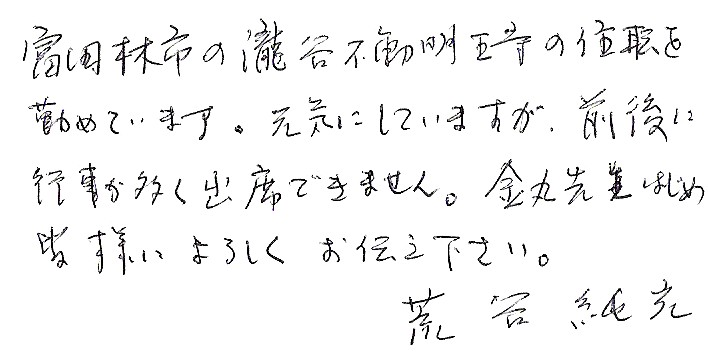 富田林市の瀧谷不動明王寺の住職を
勤めています。元気にしていますが、前後に
行事が多く出席できません。金丸先生はじめ
皆様によろしくお伝え下さい。
荒谷純充